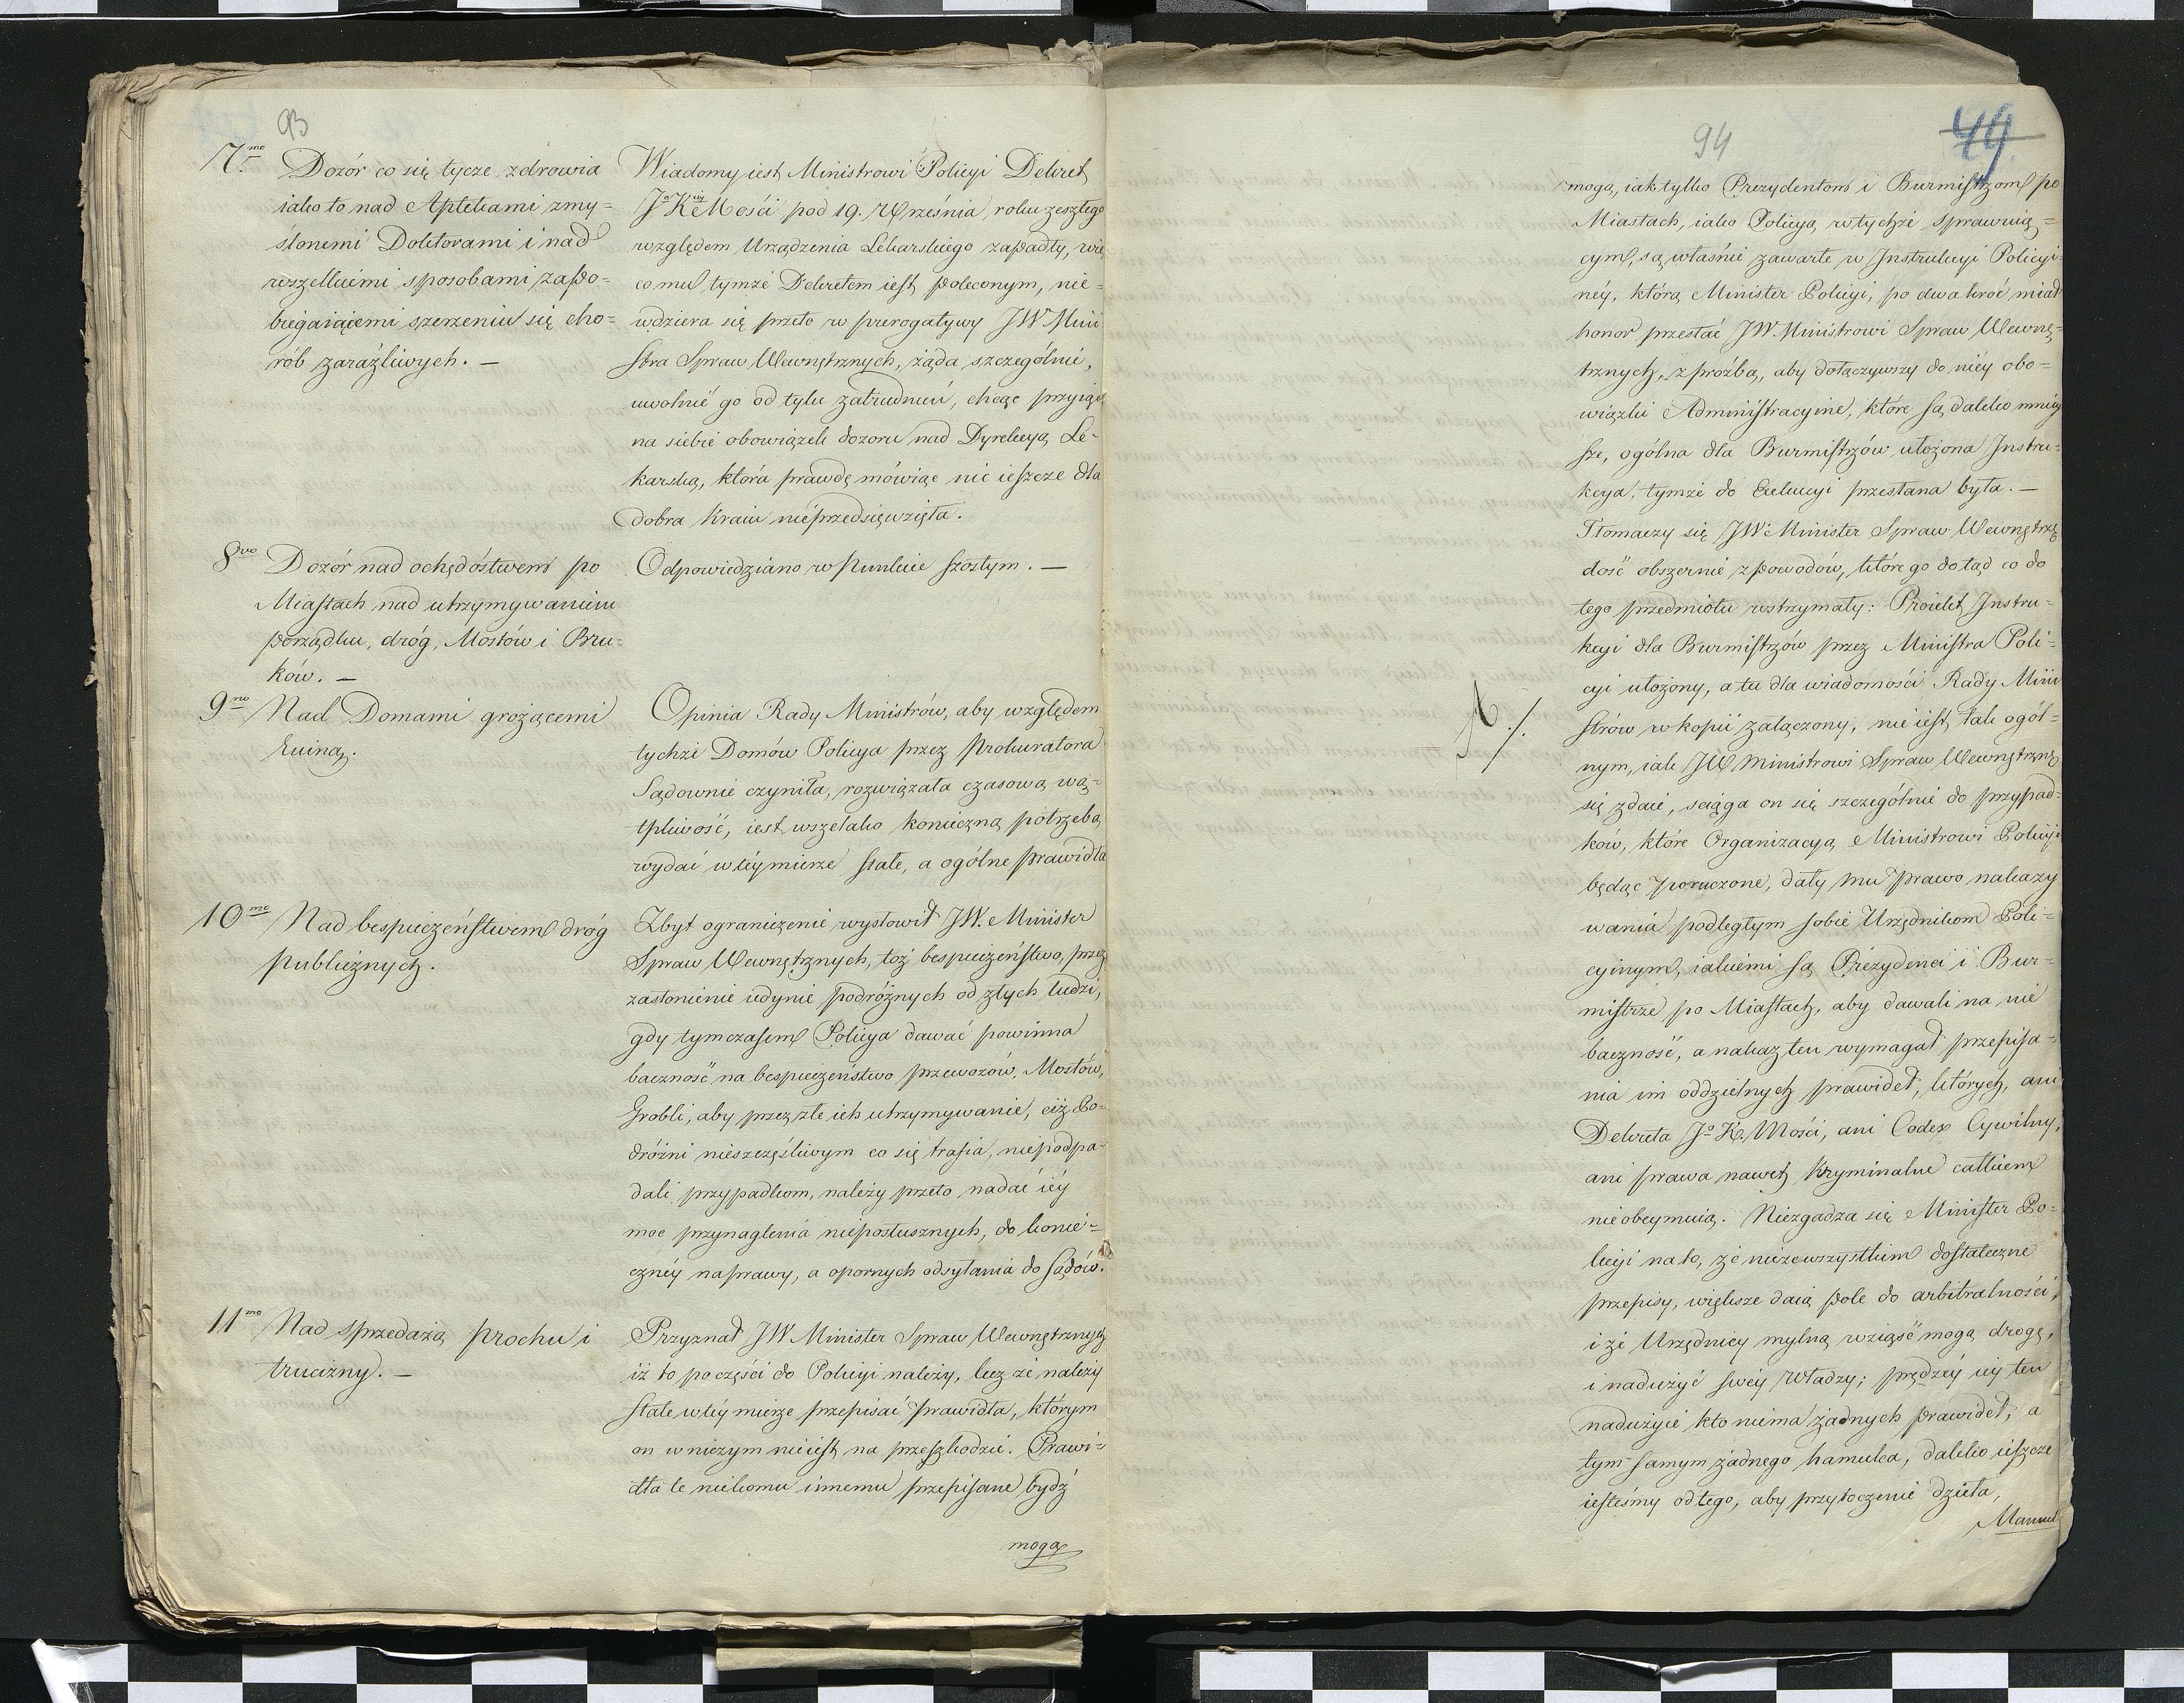 93
7mo Dozór co się tycze zdrowia
iako to nad Aptekami zmy=
ślonemi Doktorami i nad
wszelkiemi sposobami zapo=
biegaiącemi szerzeniu się cho=
rób zaraźliwych. —
Wiadomy iest Ministrowi Policyi Dekret
Jo Kréy Mości pod 19. Września roku zeszłego
względem Urządzenia Lekarskiego zapadły, wie
co mu tymże Dekretem iest poleconym, nie=
wdziera się przeto w prerogatywy JW Mini
stra Spraw Wewnętrznych, żąda szczególnie,
uwolnić go od tylu zatrudnień, chcąc przyiąć
na siebie obowiązek dozoru nad Dyrekcyą Le=
karską, która prawdę mówiąc nic ieszcze dla
dobra Kraiu nieprzedsięwzięła.
8vo Dozór nad ochędóstwem po
Miastach nad utrzymywaniem
porządku, dróg, Mostów i Bru=
ków. —
Odpowiedziano w Punkcie szostym. —
9no Nad Domami grożącemi
Ruiną.
Opinia Rady Ministrów, aby względem
tychże Domów Policya przez Prokuratora
Sądownie czyniła, rozwiązała czasową wą=
tpliwość, iest wszelako konieczną potrzebą
wydać w téy mierze stałe, a ogólne prawidła
10mo Nad bespieczeństwem dróg
publicznych.
Zbyt ograniczenie wysłowił JW. Minister
Spraw Wewnętrznych, toż bespieczeństwo, przez
zasłonienie iedynie podróżnych od złych ludzi,
gdy tymczasem Policya dawać powinna
baczność na bespieczeństwo przewozów, Mostów,
Grobli, aby przez złe ich utrzymywanie, ciż Po=
dróżni nieszczęśliwym co się trafia, niepodpa=
dali przypadkom, należy przeto nadać iéy
moc przynaglenia nieposłusznych, do konie=
cznéy naprawy, a opornych odsyłania do Sądów.
11mo Nad sprzedażą prochu i
trucizny. —
Przyznał JW Minister Spraw Wewnętrznych
iż to po części do Policyi należy, lecz że należy
stałe w téy mierze przepisać prawidła, którym
on w niczym nieiest na przeszkodzie. Prawi=
dła te nikomu innemu przepisane bydź
mogą
94
49
mogą, iak tylko Prezydentom i Burmistrzom po
Miastach, iako Policyą w tychże sprawuią=
cym, są właśnie zawarte w Instrukcyi Policyi
néy, którą Minister Policyi, po dwa kroć miał
honor przesłać JW. Ministrowi Spraw Wewnę=
trznych, z prożbą, aby dołączywszy do niéy obo=
wiązki Administracyine, które są daleko mniey
sze, ogólna dla Burmistrzów ułożona Instru=
kcya, tymże do Exekucyi przesłana była. —
Tłomaczy się JW. Minister Spraw Wewnętrz
dość obszernie z powodów, które go dotąd co do
tego przedmiotu wstrzymały: Proiekt Instru=
kcyi dla Burmistrzów przez Ministra Poli=
cyi ułożony, a tu dla wiadomości Rady Mini
strów w kopii załączony, nie iest tak ogól=
nym, iak JW Ministrowi Spraw Wewnętrzny
się zdaie, ściąga on się szczególnie do przypad=
ków, które Organizacyą Ministrowi Policyi
będąc poruczone, dały mu prawo nakazy
wania podległym sobie Urzędnikom Poli=
cyinym, iakiemi są Prezydenci i Bur=
mistrze po Miastach, aby dawali na nie
baczność, a nakaz ten wymagał przepisa=
nia im oddzielnych prawideł, których, ani
Dekreta Jo K. Mości, ani Codex Cywilny,
ani prawa nawet Kryminalne całkiem
nieobeymuią. Niezgadza się Minister Po=
licyi na to, że niezewszystkim dostateczne
przepisy, większe daią pole do arbitralności,
i że Urzędnicy mylną wziąść mogą drogę,
i nadużyć swéy Władzy; prędzéy iéy ten
nadużyie kto niema żadnych prawideł, a
tym samym żadnego hamulca, daleko ieszcze
iesteśmy od tego, aby przytoczenie dzieła,
Manuel